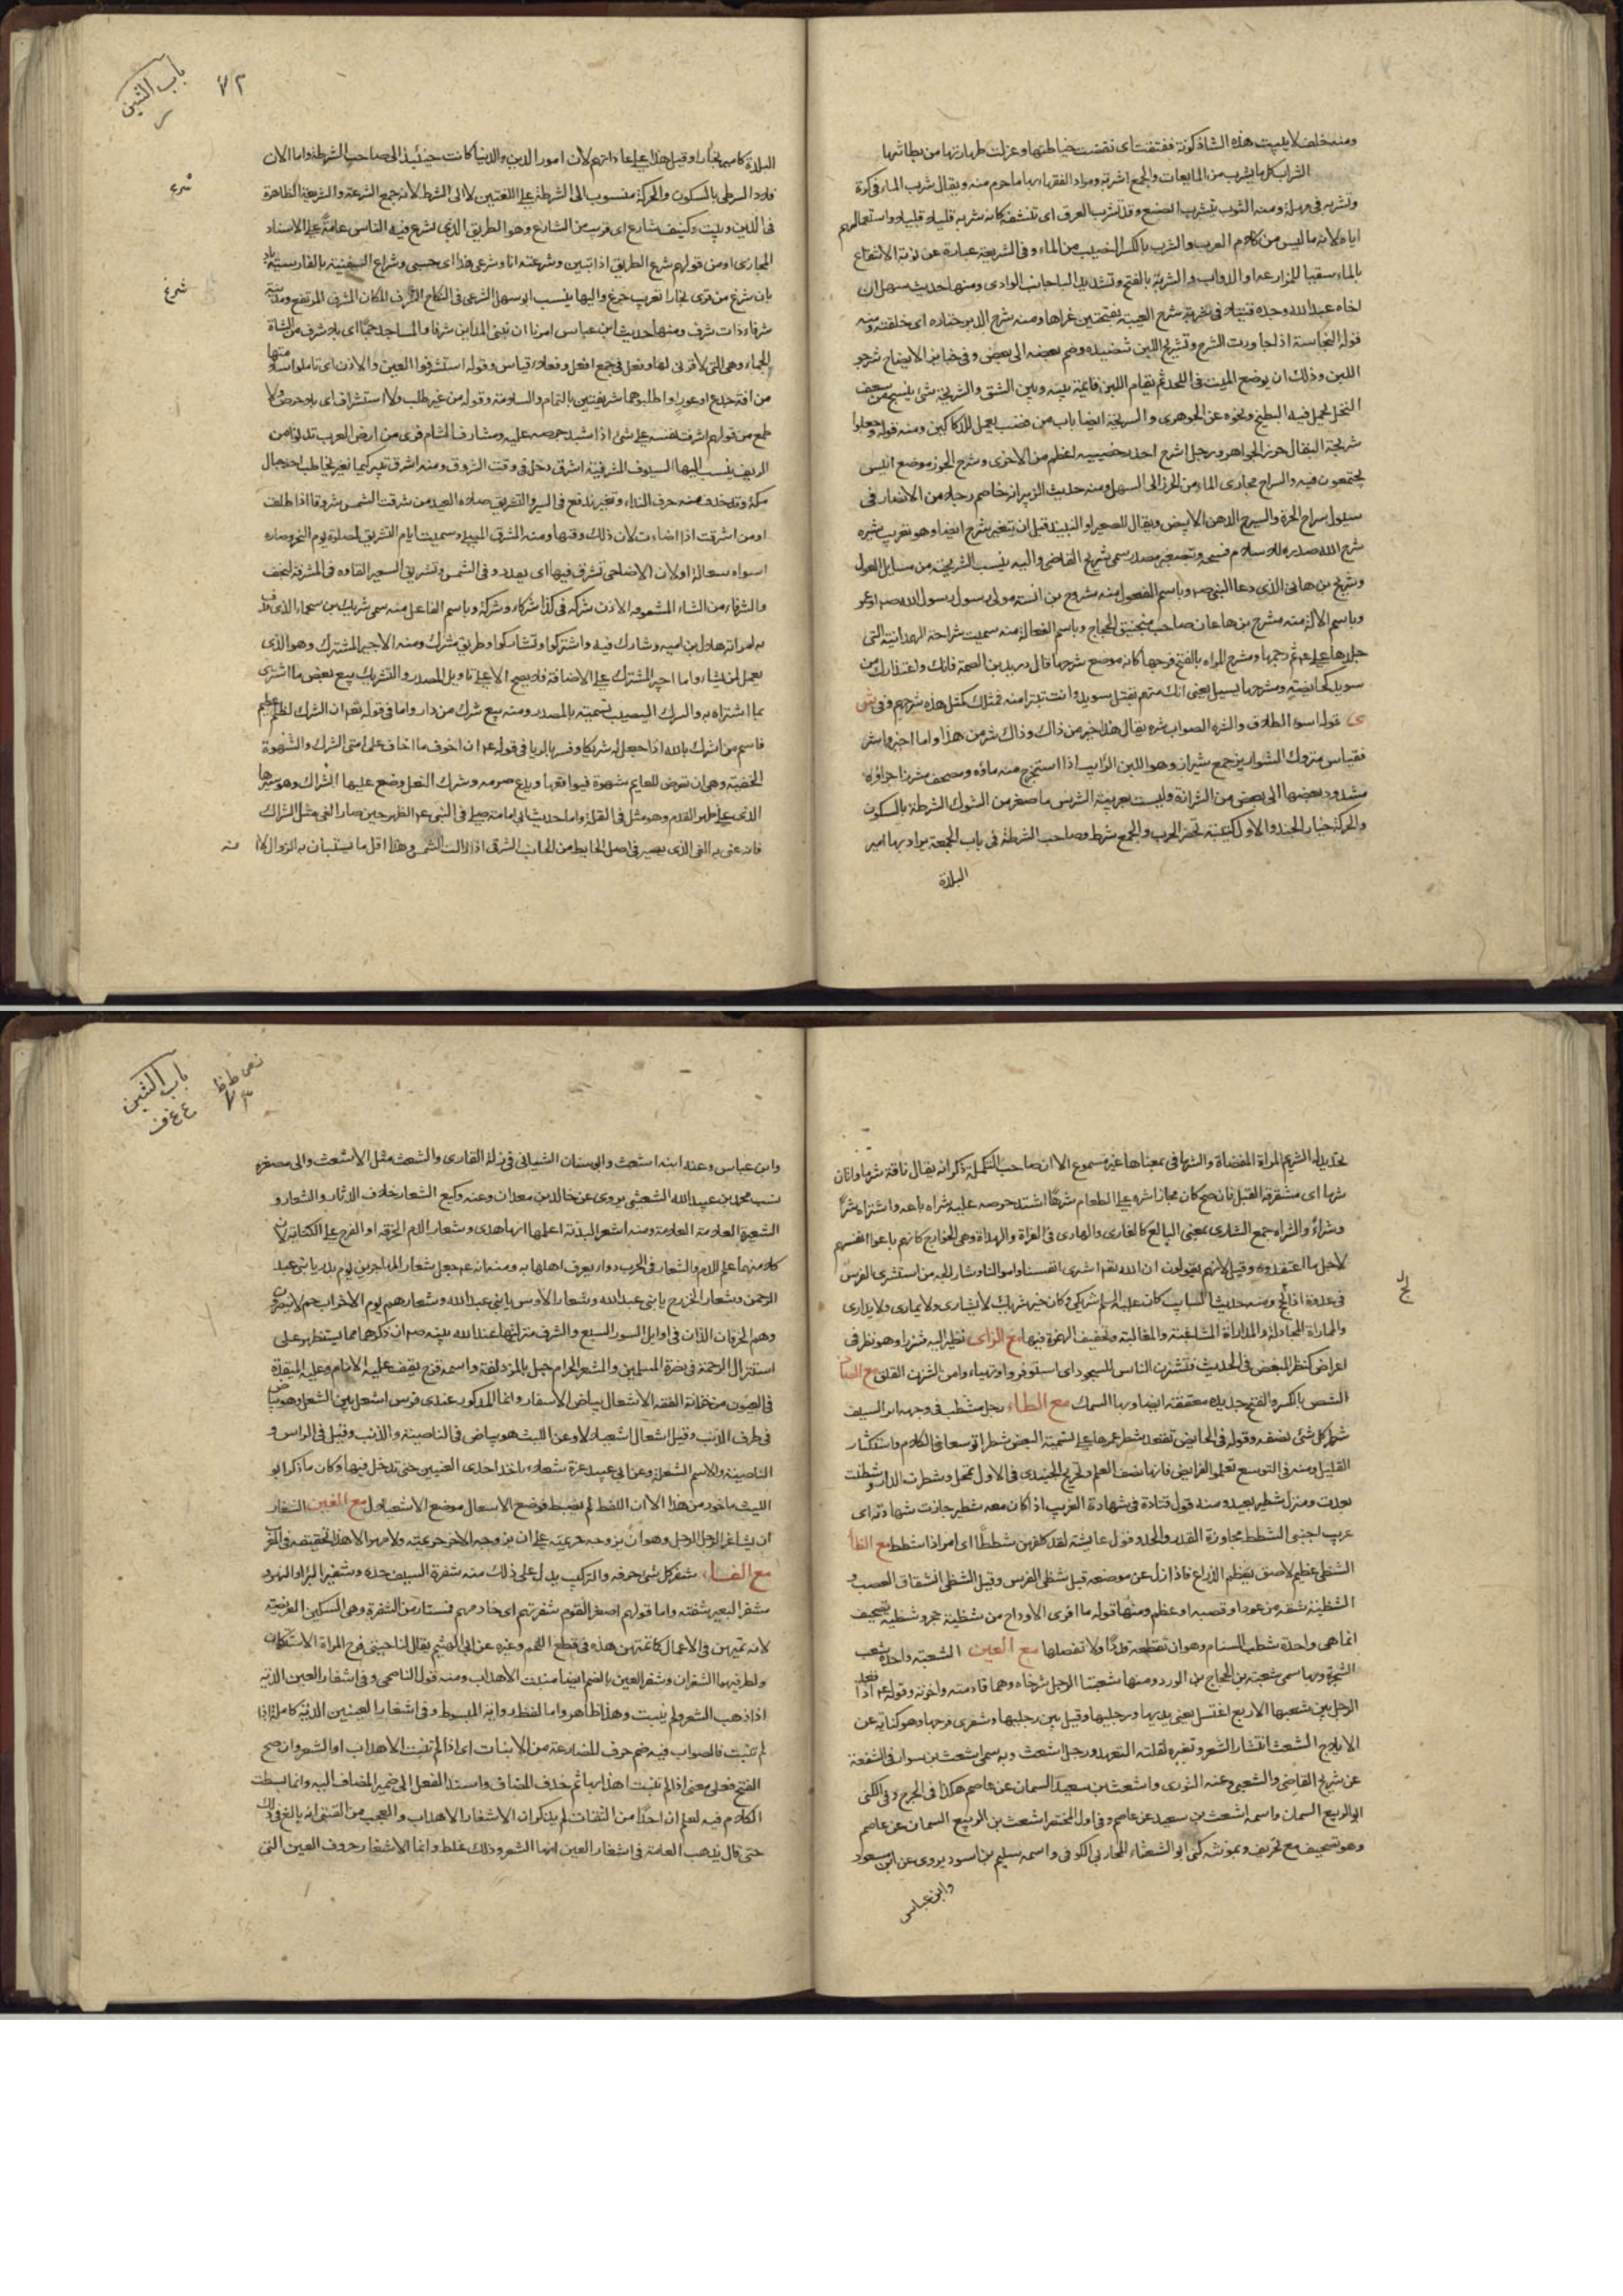 ومنه خلف لا يلبث هذه الشاذكونة ففتقت اى نقضت خياطتها وعزلت طهارتها من بطانتها
الشراب كل ما يشرب من المايعات والجمع اشربة ومراد الفقهاء بها ما حرم منه ويقال شرب الماء فى كرة
وتشربه فى مهلة ومنه الثوب يتشرب الصبغ وقد تشرب العرق اى تنشفه كانه شربه قليلا قليلا واستعمالهم
اياه لازما ليس من كلام العرب والشرب بالكسر النصيب من الماء وفى الشريعة عبارة عن نوبة الانتفاع
بالماء سقيا للمزارعه او الدواب والشربة بالفتح وتشديد البا جانب الوادى ومنها حديث سهل ان
اخاه عبد الله وجد قتيلا فى شربة شرح العيبة بفتحتين عراها ومنه شرج الدبر حتاره اى حلقته ومنه
قوله النجاسة اذا جاوزت الشرج وتشريج اللبن تنضيده وضم بعضه الى بعض وفى جنايز الايضاح شرجوا
اللبن وذلك ان يوضع الميت فى اللحد ثم يقام اللبن قايمة بينه وبين الشق والشريجة شئ ينسج من سعف
النخل يحمل فيه البطيخ ونحوه عن الجوهرى والشريجة ايضا باب من قصب يعمل للدكاكين ومنه قوله وجعلوا
شريجة البقال حرزا للجواهر ورجل اشرج احد خصييه اعظم من الاخرى وشرج العجوز موضع انيس
يجتمعون فيه والشراج مجارى الماء من الحرار الى السهل ومنه حديث الزبير انه خاصم رجلا من الانصار فى
سيول شراج الحرة والشيرج الدهن الابيض ويقال للعصير او النبيذ قبل ان يتغير شيرج ايضا وهو تعريب شيره
شرح الله صدره للاسلام فسحه وبتصغير مصدره سمى شريح القاضى واليه ينسب الشريحية من مسايل العول
وشريح بن هانئ الذى دعا النبى صم وباسم المفعول منه مشروح بن انسة مولى رسول الله صم
وباسم الالة منه مشرح بن هاعان صاحب منجنيق الحجاج وباسم الفعالة منه سميت شراحة الهمدانية التى
جلدها على عم ثم رجمها ومشرح المراة بالفتح فرجها كانه موضع شرحها قال دريد بن الصمة فانك واعتذارك من
سويد كحائضة ومشرحها يسيل يعنى انك متهم بقتل سويد وانت تتبرا منه فمثلك كمثل هذه
قوله اسوء الطلاق واشره الصواب شره يقال هذا خير من ذاك وذاك شر من هذا واما اخير واشر
فقياس متروك الشواريز جمع شيراز وهو اللبن الرايب اذا استخرج منه ماؤه ومصحف مشرز اجزاؤه
مشدود بعضها الى بعض من الشرازة وليست بعربية الشرس ما صغر من الشوك الشرطة بالسكون
والحركة خيار الجند والاول كتيبة تحضر الحرب والجمع شرط وصاحب الشرطة فى باب الجمعة يراد بها امير
البلدة
باب الشين
٧٢
البلدة كامير بخارا وقيل هذا على عاداتهم لان امور الدين والدنيا كانت حينئذ الى صاحب الشرطة واما الان
فلا والشرطى بالسكون والحركة منسوب الى الشرطة على اللغتين لا الى الشرط لانه جمع الشرعة والشريعة الظاهرة
شرع
فى الدين وبيت وكنيف شارع اى قريب من الشارع وهو الطريق الذى يشرع فيه الناس عامة على الاسناد
المجازى او من قولهم شرع الطريق اذا تبين وشرعته انا وشرعى هذا اى حسبى وشراع السفينة بالفارسية
شرغ
بادبان شرغ من قرى بخارا تعريب جرغ واليها ينسب ابو سهل الشرغى فى النكاح الشرف المكان المشرف المرتفع ومدينة
شرفاء ذات شرف ومنها حديث ابن عباس امرنا ان نبنى المداين شرفا والمساجد جما اى بلا شرف من الشاة
الجماء وهى التى لا قرن لها وفعل فى جمع افعل وفعلاء قياس وقوله استشرفوا العين والاذن اى تاملوا سلامتها
من افة جدع او عور او اطلبوهما شريفتين بالتمام والسلامة وقوله من غير طلب ولا استشراف اى بلا حرص ولا
طمع من قولهم اشرفت نفسه على شئ اذا اشتد حرصه عليه ومشارف الشام قرى من ارض العرب تدنو من
الريف ينسب اليها السيوف المشرفية اشرق دخل فى وقت الشروق ومنه اشرق ثبير كيما نغير يخاطب احد جبال
مكة وقد حذف منه حرف النداء ونغير ندفع فى السير والتشريق صلاة العيد من شرقت الشمس شروقا اذا طلعت
او من اشرقت اذا اضاءت لان ذلك وقتها ومنه المشرق المصلى وسميت ايام التشريق لصلاة يوم النحر وصار ما
سواه تبعا له او لان الاضاحى تشرق فيها اى تقدد فى الشمس وتشريق الشعير القاوه فى المشرقة ليجف
والشرقاء من الشاء المشقوقة الاذن شركه فى كذا شركا وشركة وباسم الفاعل منه سمى شريك بن سحماء الذى قذف
به امراته هلال بن اميه وشارك فيه واشتركوا وتشاركوا وطريق مشترك ومنه الاجير المشترك وهو الذى
يعمل لمن شاء واما اجير المشترك على الاضافة فلا يصح الا على تاويل المصدر والتشريك بيع بعض ما اشترى
بما اشتراه به والشرك النصيب تسمية بالمصدر ومنه بيع شرك من دار واما فى قوله تعم ان الشرك لظلم عظيم
فاسم من اشرك بالله اذا جعل له شريكا وفسر بالريا فى قوله عم ان اخوف ما اخاف على امتى الشرك والشهوة
الخفية وهى ان تعرض للصايم شهوة فيواقعها ويدع صومه وشرك النعل وضع عليها الشراك وهو سيرها
الذى على ظهر القدم وهو مثل فى القلة واما حديث ابى امامة صلى بى النبى عم الظهر حين صار الفئ مثل الشراك
فانه عنى به الفئ الذى يصير فى اصل الحايط من الجانب الشرقى اذا زالت الشمس وهذا اقل ما يستبان به الزوال لا انه
تحديد له الشريم المراة المفضاة والشرما فى بمعناها غير مسموع الا ان صاحب التكملة ذكر انه يقال ناقة شرما واتان
شرما اى مشقوقة القبل فان صح كان مجازا شره على الطعام شرها اشتد حرصه عليه شراه باعه واشتراه شرا
وشراء والشراه جمع الشارى بمعنى البايع كالغازى والهادى فى الغزاة والهداة وهى الخوارج كانهم باعوا انفسهم
لاجل ما اعتقدوه وقيل لانهم يقولون ان الله تعم اشترى انفسنا واموالنا وشاراه لجه من استشرى الفرس
فى عدوه اذا لج ومنه حديث السايب كان عليه السلم شريكى وكان خير شريك لا يشارى ولا يمارى ولا يدارى
لج
والمماراة المجادلة والمداراة المشاغبة والمغالبة وتخفيف الهمزة فيها مع الزاى نظر اليه شزرا وهو نظر فى
اعراض كنظر المبغض فى الحديث فتشزن الناس للسجود اى استوفزوا وتهياوا من الشزن القلق مع الصاد
الشص بالكسر والفتح حديدة معقفة يصاد بها السمك مع الطاء رجل مشطب فى وجهه اثر السيف
شطر كل شئ نصفه وقوله فى الحائض تقعد شطر عمرها على تسمية البعض شطرا توسعا فى الكلام واستكثار
القليل ومنه فى التوسع تعلموا الفرايض فانها نصف العلم وتخريج الجنيدى فى الاول تمحل وشطرت الدار وشطنت
بعدت ومنزل شطير بعيد ومنه قول قتادة فى شهادة القريب اذا كان معه شطير جازت شهادته اى
غريب اجنبى الشطط مجاوزة القدر والحد وقول عايشة لقد كلفهن شططا اى امرا ذا شطط مع الظاء
الشظى عظيم لاصق بعظم الذراع فاذا زل عن موضعه قيل شظى الفرس وقيل الشظى انشقاق العصب و
الشظية شقة من عود او قصبة او عظم ومنها قوله ما افرى الاوداج من شظية حجر وشطبة تصحيف
انما هى واحدة شطب السنام وهو ان تقطعه قددا ولا تفصلها مع العين الشعبة واحدة شعب
الشجرة وبها سمى شعبة بن الحجاج بن الورد ومنها شعبتا الرحل شرخاه وهما قادمته واخرته وقوله عم اذا قعد
الرجل بين شعبها الاربع اغتسل يعنى يديها ورجليها وقيل بين رجليها وشفرى فرجها وهو كناية عن
الايلاج الشعث انتشار الشعر وتغيره لقلة التعهد ورجل اشعث وبه سمى اشعث بن سوار فى الشفعة
عن شريح القاضى والشعبى وعنه الثورى واشعث بن سعيد السمان عن عاصم هكذا فى الجرح وفى الكنى
ابو الربيع السمان واسمه اشعث بن سعيد عن عاصم وفى اول المختصر اشعث بن الربيع السمان عن عاصم
وهو تصحيف مع تحريف وبمونثه كنى ابو الشعثاء المحاربى الكوفى واسمه سليم بن اسود يروى عن ابن مسعود
وابن عباس
باب الشين
ع غ ف
ص ط ظ
٧٣
وابن عباس وعنه ابنه اشعث وابى سنان الشيبانى فى زلة القارى والشعث مثل الاشعث والى مصغره
نسب محمد بن عبد الله الشعيثى يروى عن خالد بن معدان وعنه وكيع الشعار خلاف الدثار والشعار و
الشعيرة العلامة ومنه اشعر البدنة اعلمها انها هدى وشعار الدم الخرقة او الفرج على الكناية لان
كلا منهما علم للدم والشعار فى الحرب نداء يعرف اهلها به ومنه انه عم جعل شعار المهاجرين يوم بدر يا بنى عبد
الرحمن وشعار الخزرج يا بنى عبد الله وشعار الاوس يا بنى عبيد الله وشعارهم يوم الاحزاب حم لا ينصرون
وهما الحرفان اللذان فى اوايل السور السبع ولشرف منزلتها عند الله نبه صم ان ذكرها مما يستظهر به على
استنزال الرحمة فى نصرة المسلمين والمشعر الحرام جبل بالمزدلفة واسمه قزح يقف عليه الامام وعليه الميقدة
فى العيون من خزانة الفقه الاشعال بياض الاشفار وانما المذكور عندى فرس اشعل بين الشعل وهو بياض
فى طرف الذنب وقيل اشعال اشعيلالا وعن الليث هو بياض فى الناصية والذنب وقيل فى الراس و
الناصية والاسم الشعلة وعن ابى عبيد غرة شعلاء ياخذ احدى العينين حتى تدخل فيها وكان ما ذكر ابو
الليث ماخوذ من هذا الا ان اللفظ لم يضبط فوضع الاشعال موضع الاشعيلال مع الغين الشغار
ان يشاغر الرجل الرجل وهو ان يزوجه حريمته على ان يزوجه الاخر حريمته ولا مهر الا هذا تحقيقه فى المغرب
مع الفاء شفر كل شئ حرفه والتركيب يدل على ذلك منه شفرة السيف حده وشفير البئر او النهر و
مشفر البعير شفته واما قولهم اصغر القوم شفرتهم اى خادمهم فمستعار من الشفرة وهى السكين العريضة
لانه يمتهن فى الاعمال كما تمتهن هذه فى قطع اللحم وغيره عن ابى الهيثم يقال لناحيتى فرج المراة الاسكتان
ولطرفيهما الشفران وشفر العين بالضم ايضا منبت الاهداب ومنه قول الناصحى وفى اشفار العين الدية
اذا ذهب الشعر ولم ينبت وهذا ظاهر واما لفظ رواية المبسوط وفى اشفار العينين الدية كاملة اذا
لم تنبت فالصواب فيه ضم حرف المضارعة من الانبات اى اذا لم تنبت الاهداب او الشعر وان صح
الفتح فعلى معنى اذا لم تنبت اهدابها ثم حذف المضاف واسند الفعل الى ضمير المضاف اليه وانما بسطت
الكلام فيه ليعلم ان احدا من الثقات لم يذكر ان الاشفار الاهداب والعجب من القتبى انه بالغ فى ذلك
حتى قال تذهب العامة فى اشفار العين انها الشعر وذلك غلط وانما الاشفار حروف العين التى